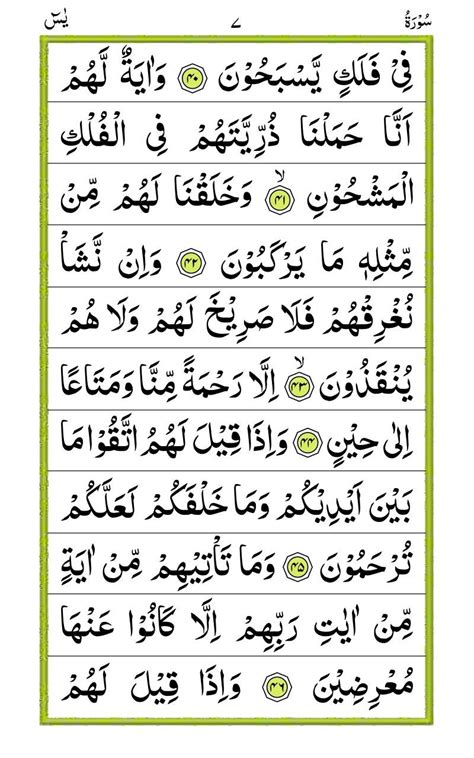 سُوْرَةُ ٧ يٰسٓ
فِیْ فَلَكٍ یَّسْبَحُوْنَ ﴿۴۰﴾ وَاٰیَةٌ لَّهُمْ
اَنَّا حَمَلْنَا ذُرِّیَّتَهُمْ فِی الْفُلْكِ
الْمَشْحُوْنِ ﴿۴۱﴾ۙ وَخَلَقْنَا لَهُمْ مِّنْ
مِّثْلِهٖ مَا یَرْكَبُوْنَ ﴿۴۲﴾ وَاِنْ نَّشَاْ
نُغْرِقْهُمْ فَلَا صَرِیْخَ لَهُمْ وَلَا هُمْ
یُنْقَذُوْنَ ﴿۴۳﴾ۙ اِلَّا رَحْمَةً مِّنَّا وَمَتَاعًا
اِلٰی حِیْنٍ ﴿۴۴﴾ وَاِذَا قِیْلَ لَهُمُ اتَّقُوْا مَا
بَیْنَ اَیْدِیْكُمْ وَمَا خَلْفَكُمْ لَعَلَّكُمْ
تُرْحَمُوْنَ ﴿۴۵﴾ وَمَا تَاْتِیْهِمْ مِّنْ اٰیَةٍ
مِّنْ اٰیٰتِ رَبِّهِمْ اِلَّا كَانُوْا عَنْهَا
مُعْرِضِیْنَ ﴿۴۶﴾ وَاِذَا قِیْلَ لَهُمْ